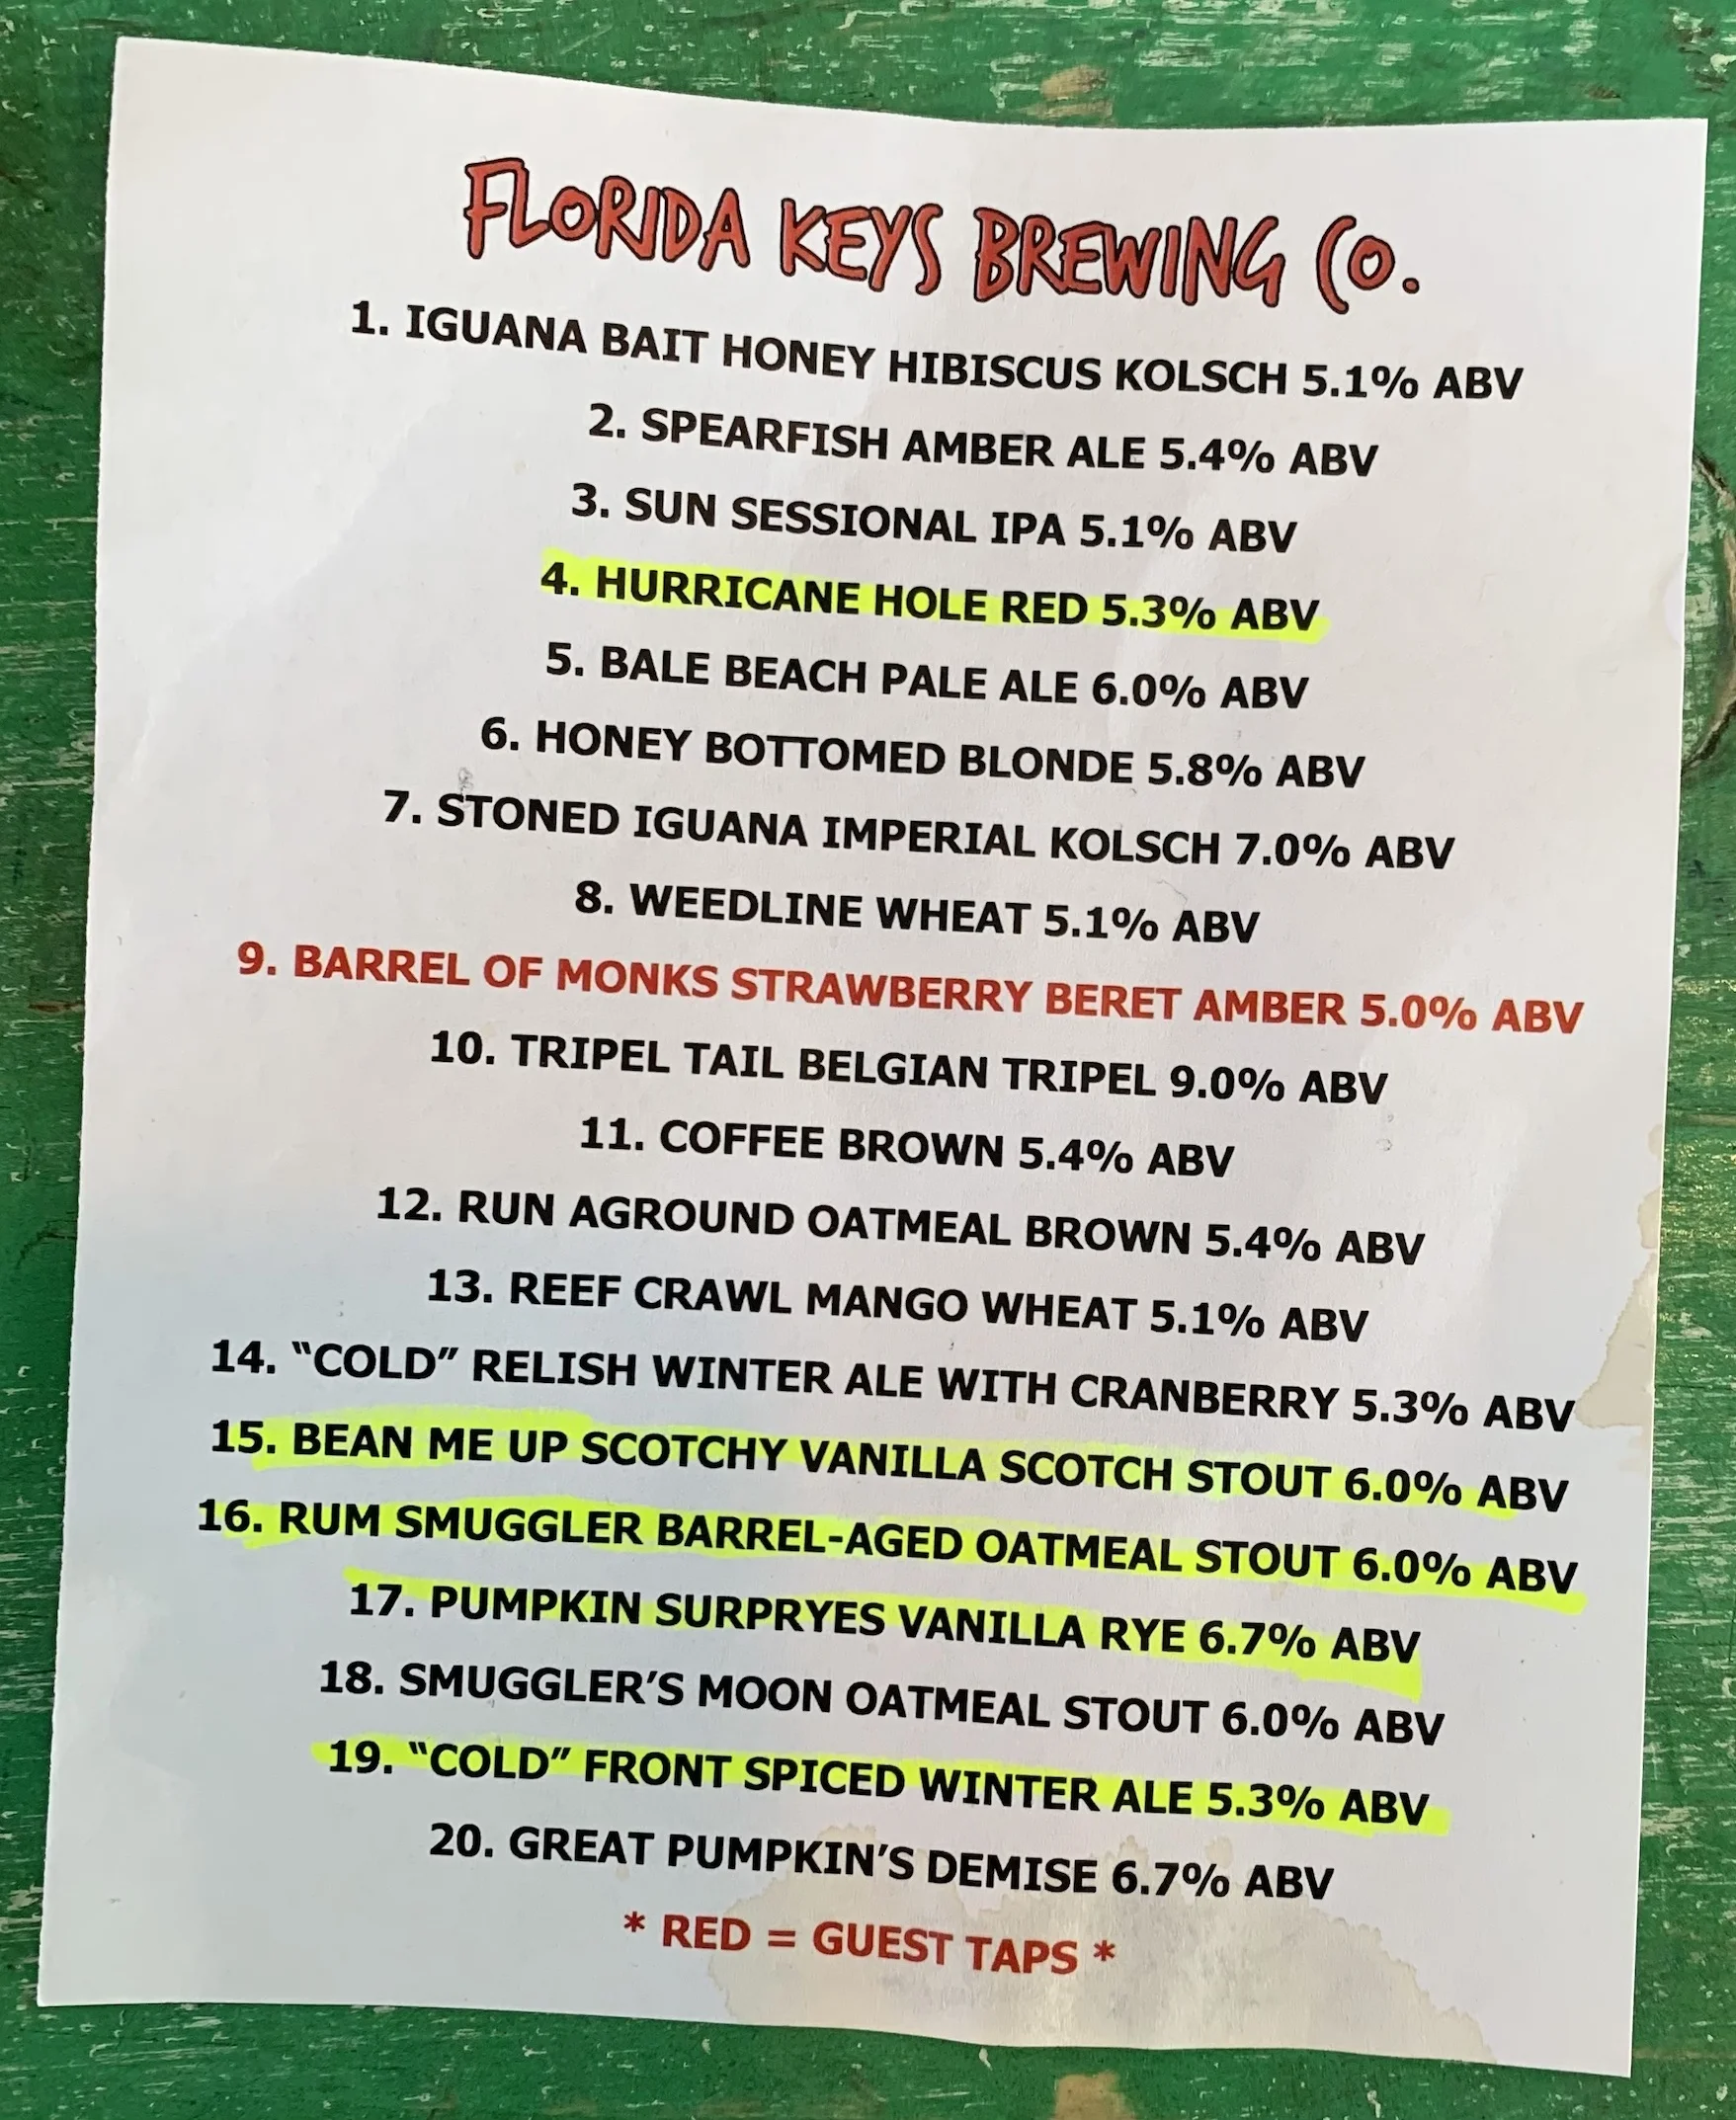 FLORIDA KEYS BREWING CO.
1. IGUANA BAIT HONEY HIBISCUS KOLSCH 5.1% ABV
2. SPEARFISH AMBER ALE 5.4% ABV
3. SUN SESSIONAL IPA 5.1% ABV
4. HURRICANE HOLE RED 5.3% ABV
5. BALE BEACH PALE ALE 6.0% ABV
6. HONEY BOTTOMED BLONDE 5.8% ABV
7. STONED IGUANA IMPERIAL KOLSCH 7.0% ABV
8. WEEDLINE WHEAT 5.1% ABV
9. BARREL OF MONKS STRAWBERRY BERET AMBER 5.0% ABV
10. TRIPEL TAIL BELGIAN TRIPEL 9.0% ABV
11. COFFEE BROWN 5.4% ABV
12. RUN AGROUND OATMEAL BROWN 5.4% ABV
13. REEF CRAWL MANGO WHEAT 5.1% ABV
14. “COLD” RELISH WINTER ALE WITH CRANBERRY 5.3% ABV
15. BEAN ME UP SCOTCHY VANILLA SCOTCH STOUT 6.0% ABV
16. RUM SMUGGLER BARREL-AGED OATMEAL STOUT 6.0% ABV
17. PUMPKIN SURPRYES VANILLA RYE 6.7% ABV
18. SMUGGLER’S MOON OATMEAL STOUT 6.0% ABV
19. “COLD” FRONT SPICED WINTER ALE 5.3% ABV
20. GREAT PUMPKIN’S DEMISE 6.7% ABV
* RED = GUEST TAPS *